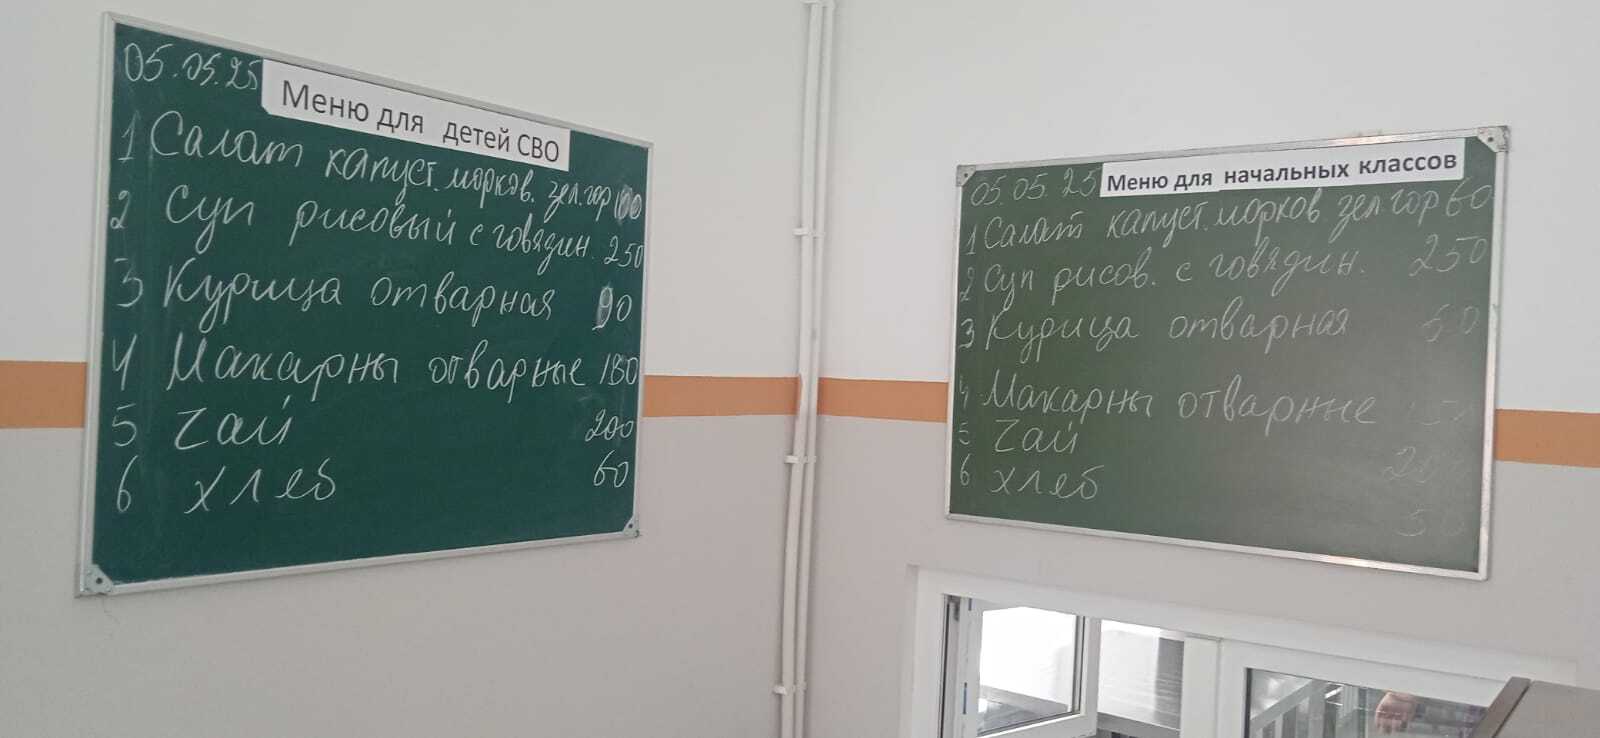 05.05.25
Меню для детей СВО
1 Салат капуст. морков. зел.гор 100
2 Суп рисовый с говядин. 250
3 Курица отварная 90
4 Макарны отварные 180
5 Чай 200
6 хлеб 60
05.05.25
Меню для начальных классов
1 Салат капуст. морков зел.гор 60
2 Суп рисов. с говядин. 250
3 Курица отварная
4 Макарны отварные
5 Чай
6 хлеб
50